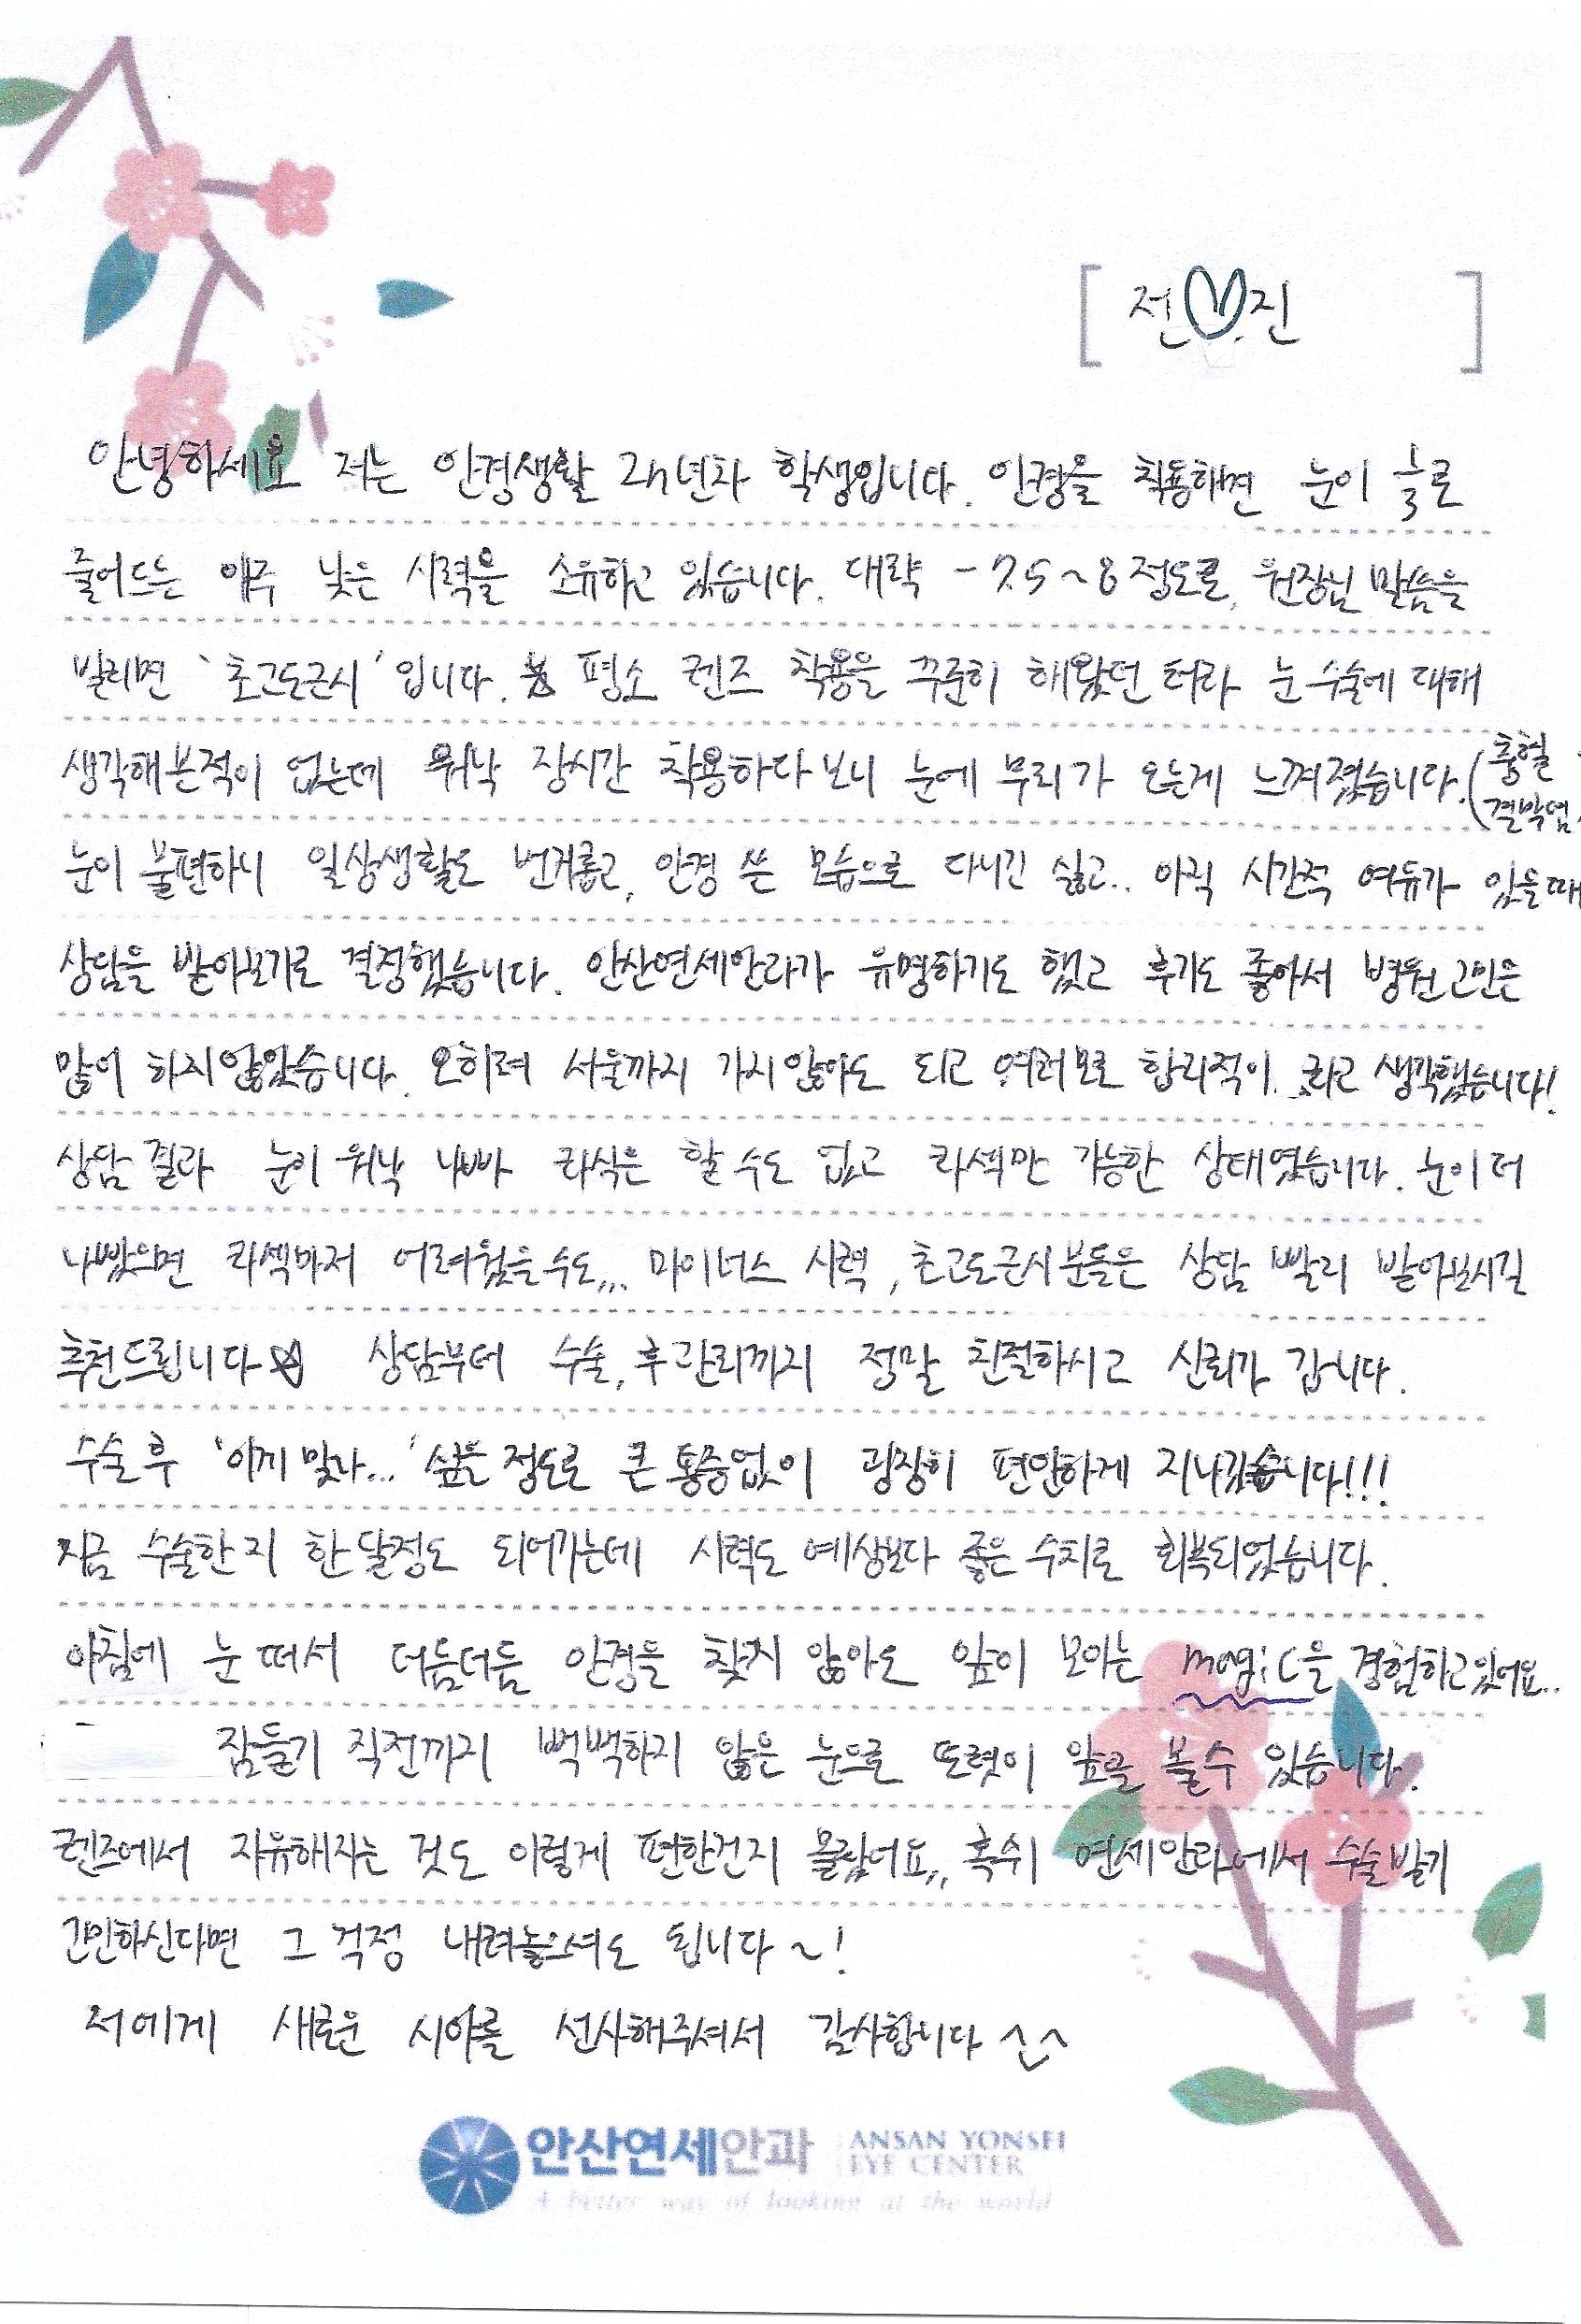 [ 전♡진 ]
안녕하세요 저는 안경생활 2n년차 학생입니다. 안경을 착용하면 눈이 1/3로
줄어드는 아주 낮은 시력을 소유하고 있습니다. 대략 -7.5~8정도로, 원장님 말씀을
빌리면 '초고도근시' 입니다. 평소 렌즈 착용을 꾸준히 해왔던 터라 눈 수술에 대해
생각해본적이 없는데 워낙 장시간 착용하다보니 눈에 무리가 오는게 느껴졌습니다. (충혈
결막염
눈이 불편하니 일상생활도 번거롭고, 안경 쓴 모습으로 다니긴 싫고.. 아직 시간적 여유가 있을때
상담을 받아보기로 결정했습니다. 안산연세안과가 유명하기도 했고 후기도 좋아서 병원고민은
많이 하지않았습니다. 오히려 서울까지 가지않아도 되고 여러모로 합리적이라고 생각했습니다!
상담 결과 눈이 워낙 나빠 라식은 할 수도 없고 라섹만 가능한 상태였습니다. 눈이 더
나빴으면 라섹마저 어려웠을수도... 마이너스 시력, 초고도근시분들은 상담 빨리 받아보시길
추천드립니다☆ 상담부터 수술, 후관리까지 정말 친절하시고 신뢰가 갑니다.
수술 후 '이게 맞나...' 싶을 정도로 큰 통증없이 굉장히 편안하게 지나갔습니다!!!
지금 수술한지 한달정도 되어가는데 시력도 예상보다 좋은 수치로 회복되었습니다.
아침에 눈 떠서 더듬더듬 안경을 찾지 않아도 앞이 보이는 magic을 경험하고있어요..
잠들기 직전까지 뻑뻑하지 않은 눈으로 또렷이 앞을 볼수 있습니다.
렌즈에서 자유해지는 것도 이렇게 편한건지 몰랐어요,, 혹시 연세안과에서 수술받기
고민하신다면 그 걱정 내려놓으셔도 됩니다~!
저에게 새로운 시야를 선사해주셔서 감사합니다 ^^
안산연세안과 ANSAN YONSEI
EYE CENTER
A better way of looking at the world